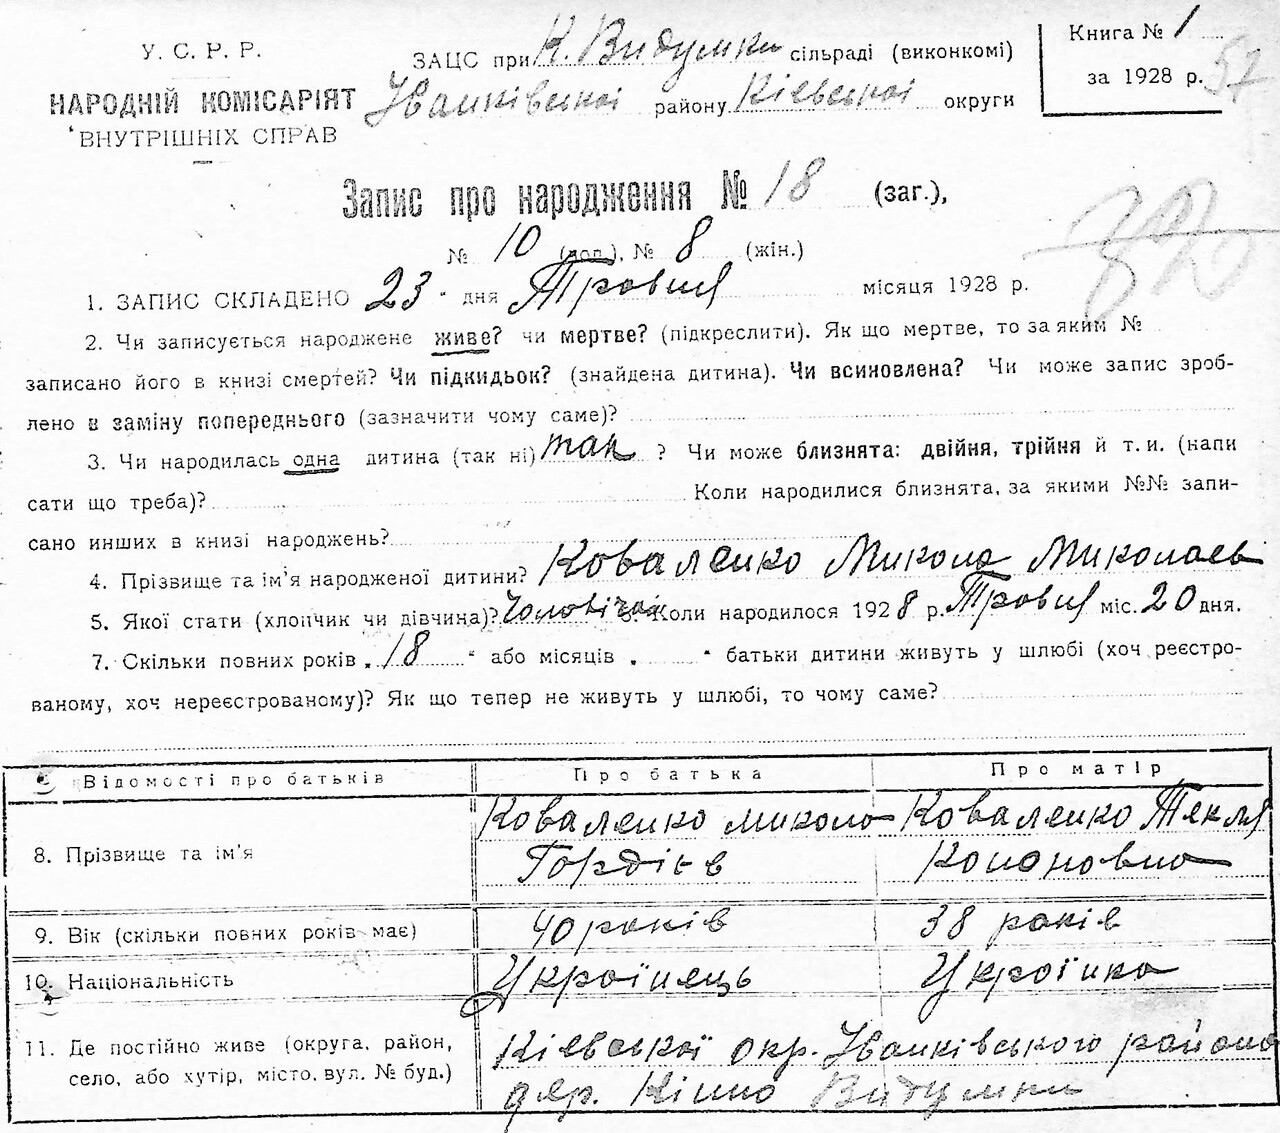 У. С. Р. Р.
НАРОДНІЙ КОМІСАРІЯТ
ВНУТРІШНІХ СПРАВ
ЗАЦС при К. Видумки сільраді (виконкомі)
Іванківської району Київської округи
Книга № 1
за 1928 р. 57
Запис про народження № 18 (заг.),
№ 10 (чол.), № 8 (жін.)
320
1. ЗАПИС СКЛАДЕНО 23 " дня Травня місяця 1928 р.
2. Чи записується народжене живе? чи мертве? (підкреслити). Як що мертве, то за яким №
записано його в книзі смертей? Чи підкидьок? (знайдена дитина). Чи всиновлена? Чи може запис зроб-
лено в заміну попереднього (зазначити чому саме)?
3. Чи народилась одна дитина (так ні) так ? Чи може близнята: двійня, трійня й т. и. (напи
сати що треба)? Коли народилися близнята, за якими №№ запи-
сано инших в книзі народжень?
4. Прізвище та ім'я народженої дитини? Коваленко Микола Миколаев
5. Якої стати (хлопчик чи дівчина)? Чоловічої 6. Коли народилося 1928 р. Травня міс. 20 дня.
7. Скільки повних років „ 18 " або місяців „ " батьки дитини живуть у шлюбі (хоч реєстро-
ваному, хоч нереєстрованому)? Як що тепер не живуть у шлюбі, то чому саме?
Відомості про батьків Про батька Про матір
8. Прізвище та ім'я Коваленко Микола Гордієв Коваленко Текля Кононовна
9. Вік (скільки повних років має) 40 років 38 років
10. Національність Українець Українка
11. Де постійно живе (округа, район, Кіевської окр. Іванківського району
село, або хутір, місто, вул. № буд.) дер. Кінно Видумки